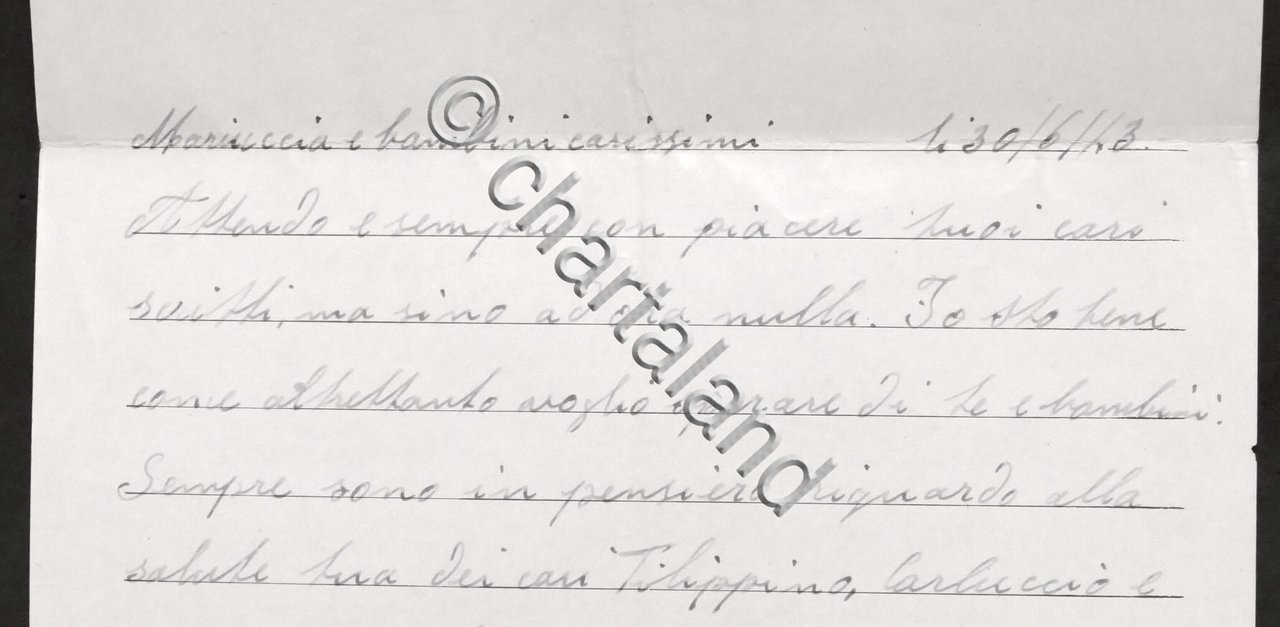 Mariuccia e bambini carissimi lì 30/6/43.
Attendo e sempre con piacere tuoi cari
scitti, ma sino ad ora nulla. Io sto bene
come altrettanto voglio sperare di te e bambini.
Sempre sono in pensiero riguardo alla
salute tua dei cari Filippino, Carluccio e
© chartaland